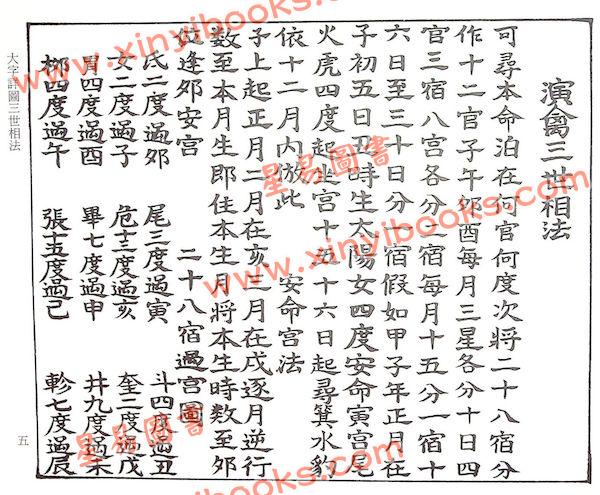 演禽三世相法
可尋本命泊在何官何度次將二十八宿分
作十二官子午卯酉每月三星各分十日四
官三宿八宮各分二宿每月十五分一宿十
六日至三十日分一宿假如甲子年正月在
子初五日丑時生太陽女四度安命寅宮尾
火虎四度起坐宮十五十六日起尋箕水豹
依十二月內倣此 安命宮法
子上起正月二月在亥三月在戌逐月逆行
數至本月生即住本生月將本生時數至卯
位逢卯安宮 二十八宿過宮圖
氐二度過卯 尾三度過寅 斗四度過丑
女二度過子 危十三度過亥 奎二度過戌
胃四度過酉 畢七度過申 井九度過未
柳四度過午 張十五度過巳 軫七度過辰
大字詳圖三世相法
五
www.xinyibooks.com
星易圖書
www.xinyibooks.com
星易圖書
www.xinyibooks.com